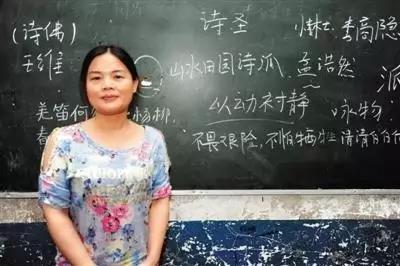 (诗佛)
诗圣
李商隐
王维
山水田园诗派 孟浩然
派
羌笛何
杨柳,
以动衬静
咏物:
春
不畏艰险,不怕牺牲
清清白白